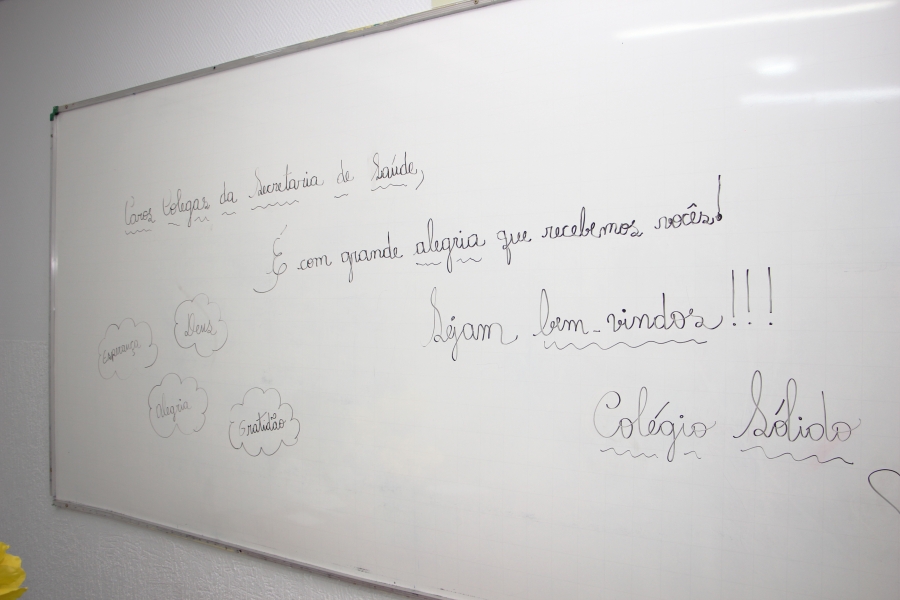 Caros Colegas da Secretaria de Saúde,
É com grande alegria que recebemos vocês!
Sejam bem-vindos!!!
Colégio Sólido
Esperança
Deus
Alegria
Gratidão